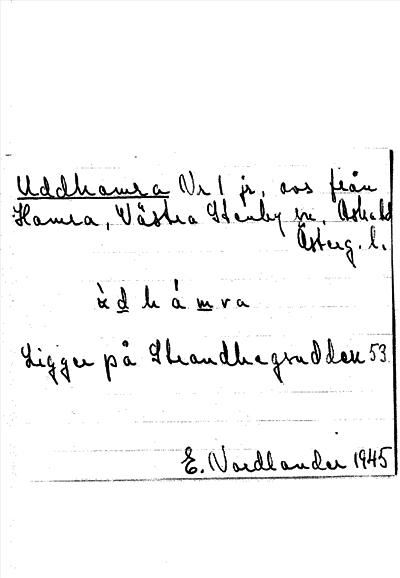 Uddhamra Nr 1 jr, avs från
Hamra, Västra Stenby sn, Askahd
Österg. l.
ù d h á m r a
Ligger på Strandhagsudden 53
E. Nordlander 1945